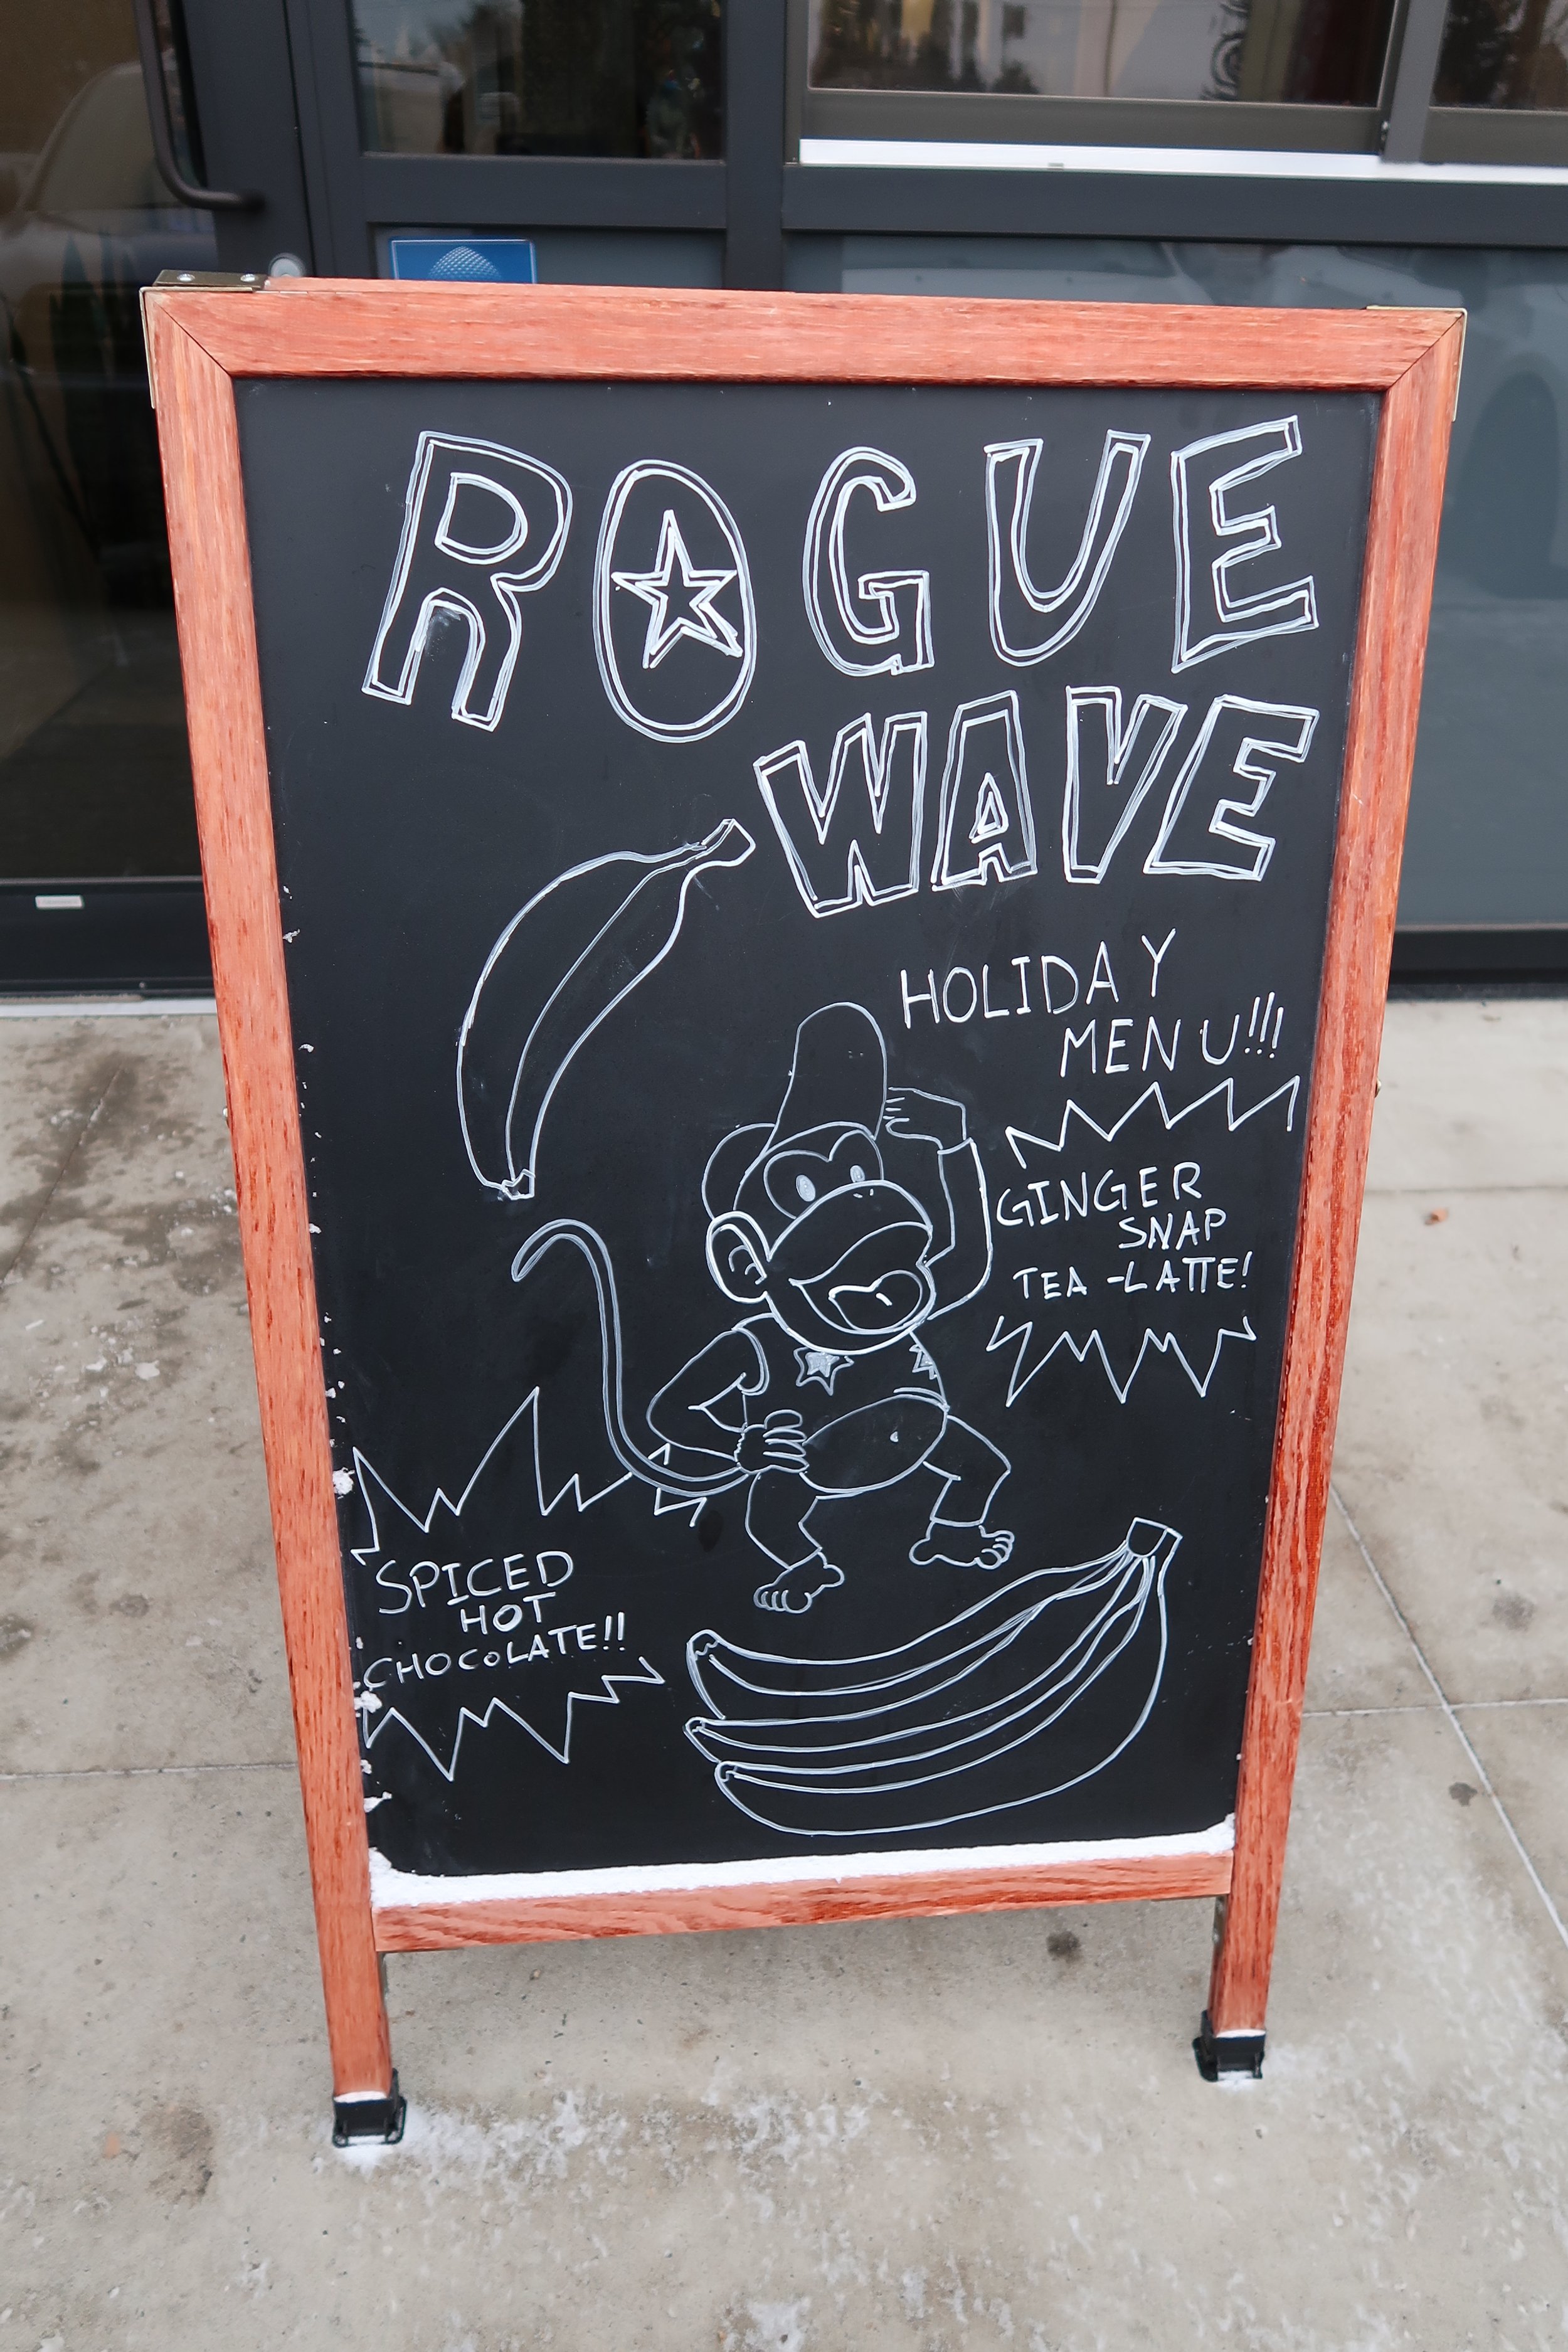 ROGUE
WAVE
HOLIDAY
MENU!!!
GINGER
SNAP
TEA -LATTE!
SPICED
HOT
CHOCOLATE!!